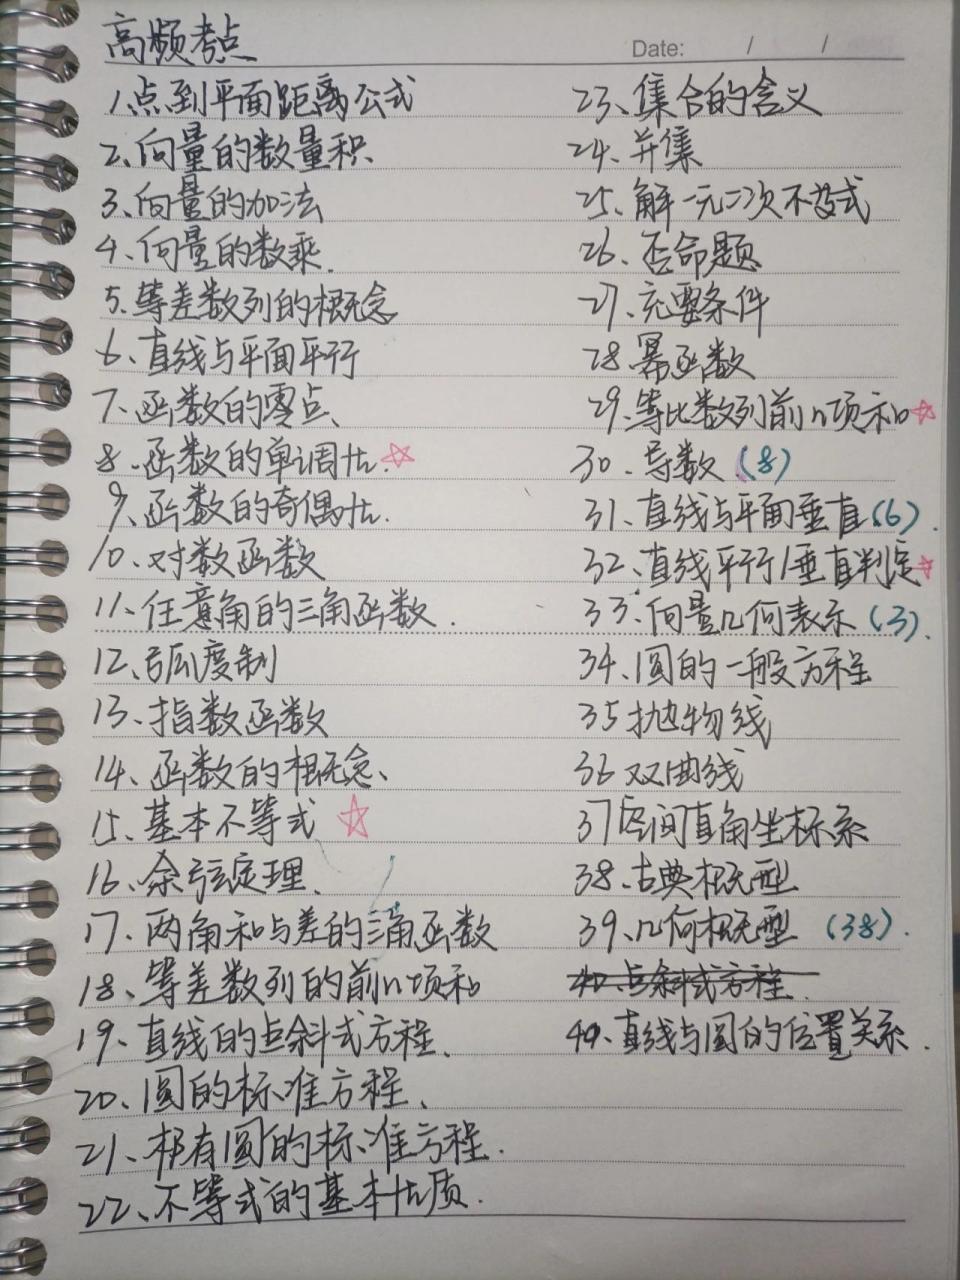 高频考点
Date: / /
1、点到平面距离公式
2、向量的数量积
3、向量的加法
4、向量的数乘.
5、等差数列的概念
6、直线与平面平行
7、函数的零点、
8、函数的单调性.☆
9、函数的奇偶性.
10、对数函数
11、任意角的三角函数.
12、弧度制
13、指数函数
14、函数的概念、
15、基本不等式 ☆
16、余弦定理.
17、两角和与差的三角函数
18、等差数列的前n项和
19、直线的点斜式方程.
20、圆的标准方程、
21、椭圆的标准方程.
22、不等式的基本性质.
23、集合的含义
24、并集
25、解一元二次不等式
26、否命题
27、充要条件
28、幂函数
29、等比数列前n项和☆
30、导数(8)
31、直线与平面垂直(6).
32、直线平行/垂直判定☆
33、向量几何表示(3).
34、圆的一般方程
35抛物线
36双曲线
37空间直角坐标系
38、古典概型
39、几何概型 (38).
40、点斜式方程.
40、直线与圆的位置关系.